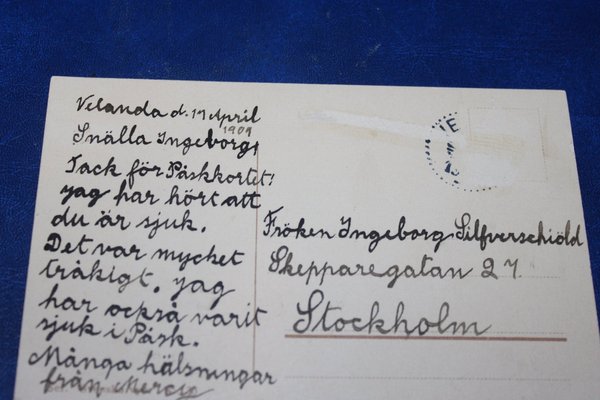 Velanda d. 17 April
1909
Snälla Ingeborg,
Tack för Påskkortet!
yag har hört att
du är sjuk.
Det var mycket
tråkigt. yag
har också varit
sjuk i Påsk.
Många hälsningar
från
Fröken Ingeborg Silfverschiöld
Skepparegatan 27.
Stockholm